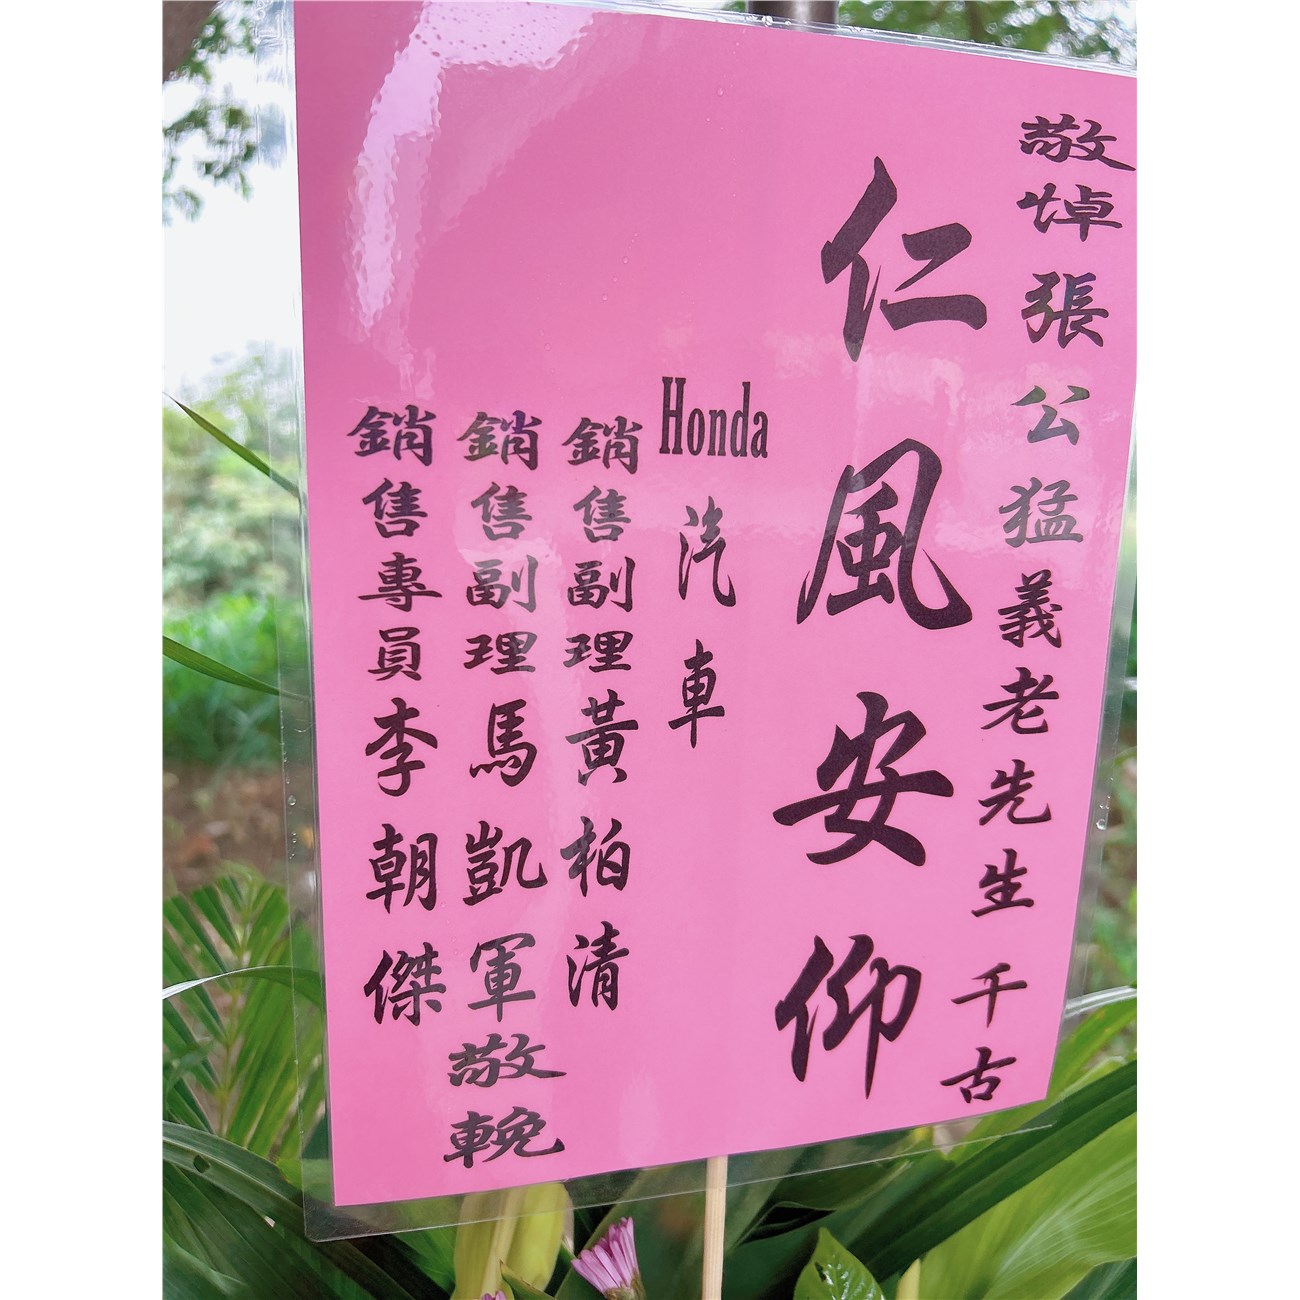 敬悼張公猛義老先生千古
仁風安仰
Honda汽車
銷售副理黃柏清
銷售副理馬凱軍
銷售專員李朝傑
敬輓